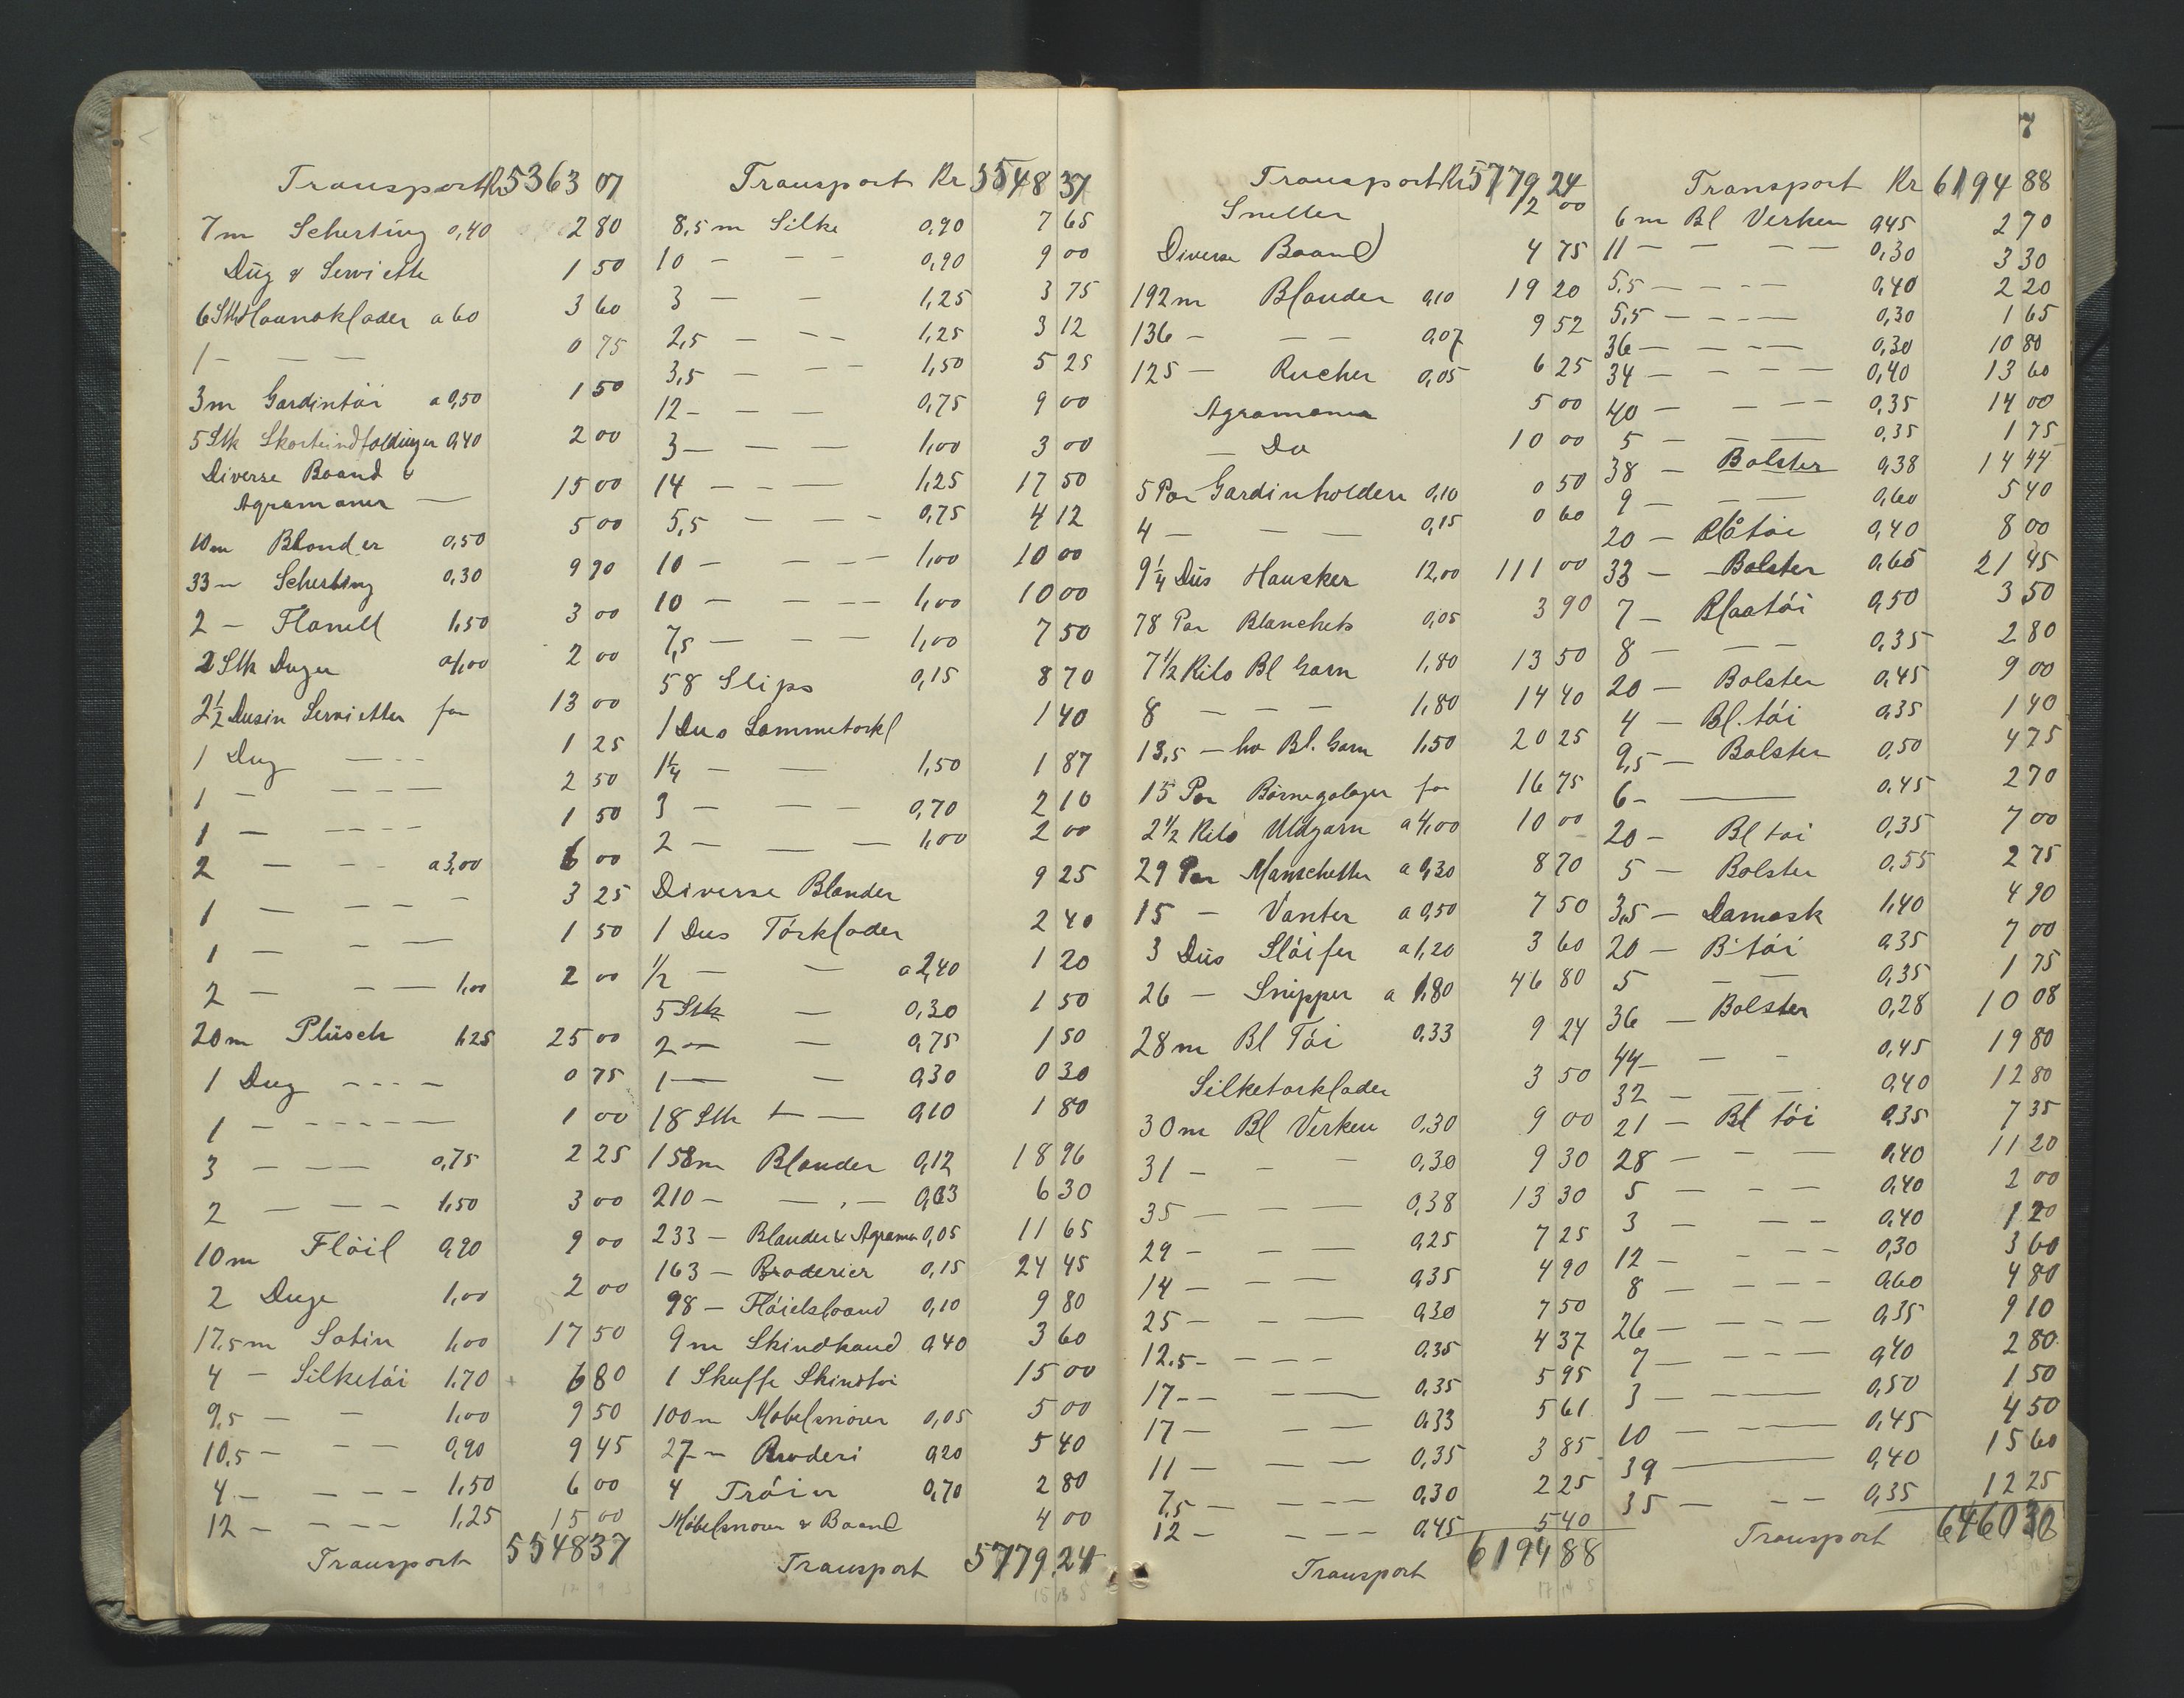 Transport Kr 5363 07
7m Scherting 0,40 2 80
Düg & Serviette 1 50
6 Stk Haandklæder a 60 3 60
1 - — — 0 75
3m Gardintöi a 0,50 1 50
5 Stk Skorteindfoldinger 0,40 2 00
Diverse Baand &
Agramaner — 15 00
10m Blonder 0,50 5 00
33 — Scherting 0,30 9 90
2 — Flanell 1,50 3 00
2 Stk Duger a 1,00 2 00
2½ Dusin Servietter for 13 00
1 Dug — - - 1 25
1 — — - - — 2 50
1 — - - - - 1 50
2 — - - a 3,00 6 00
1 — — - - - 3 25
1 — - — 1 50
2 — - — 1,00 2 00
20m Plüsch 1,25 25 00
1 Dug - - - - 0 75
1 - - - - - — 1 00
3 — - — — 0,75 2 25
2 — — - 1,50 3 00
10m Flöil 0,90 9 00
2 Duge 1,00 2 00
17,5m Satin 1,00 17 50
4 — Silketöi 1,70 6 80
9,5 — — 1,00 9 50
10,5 — - — 0,90 9 45
4 — — - - 1,50 6 00
12 — - — - 1,25 15 00
Transport 5548 37
Transport Kr 5548 37
8,5m Silke 0,90 7 65
10 — - — 0,90 9 00
3 — — 1,25 3 75
2,5 — - — 1,25 3 12
3,5 — - — 1,50 5 25
12 — — — 0,75 9 00
3 — — — 1,00 3 00
14 — - — 1,25 17 50
5,5 — - - 0,75 4 12
10 — - - — 1,00 10 00
10 — - - — 1,00 10 00
7,5 — — - 1,00 7 50
58 Slips 0,15 8 70
1 Dus Lommetørkl 1 40
1¼ — — 1,50 1 87
3 — - — 0,70 2 10
2 — — — 1,00 2 00
Diverse Blonder 9 25
1 Dus Törklæder 2 40
½ — — a 2,40 1 20
5 Stk — 0,30 1 50
2 — — 0,75 1 50
1 — — 0,30 0 30
18 Stk — — 0,10 1 80
158m Blonder 0,12 18 96
210 — — - — 0,03 6 30
233 — Blonder & Agraman 0,05 11 65
163 — Broderier 0,15 24 45
98 — Flöielsbaand 0,10 9 80
9m Skindkand 0,40 3 60
1 Skuffe Skindtøi 15 00
100m Møbelsnorer 0,05 5 00
27 — Broderi 0,20 5 40
4 Tröier 0,70 2 80
Møbelsnorer & Baand 4 00
Transport 5779,24
Transport Kr 5779 24
Sneller 12 00
Diverse Baand 4 75
192m Blonder 0,10 19 20
136 — — — 0,07 9 52
125 — Rucher 0,05 6 25
Agramaner 5 00
— Do 10 00
5 Par Gardinholdere 0,10 0 50
4 — — — 0,15 0 60
9¼ Düs Hansker 12,00 111 00
78 Par Blanchets 0,05 3 90
7½ Kilo Bl Garn 1,80 13 50
8 — — — 1,80 14 40
13,5 — hv Bl. Garn 1,50 20 25
15 Par Börnegaloger for 16 75
2½ Kilo Uldgarn a 4,00 10 00
29 Par Manschetter a 0,30 8 70
15 — Vanter a 0,50 7 50
3 Düs Slöifer a 1,20 3 60
26 — Snipper a 1,80 46 80
28m Bl Töi 0,33 9 24
Silketørklæder 3 50
30m Bl Verken 0,30 9 00
31 — — — 0,30 9 30
35 — — — 0,38 13 30
29 — — — 0,25 7 25
14 — — — 0,35 4 90
25 — — — 0,30 7 50
12,5 — - — - 0,35 4 37
17 - — - — 0,35 5 95
17 — - — 0,33 5 61
11 — — - — 0,35 3 85
7,5 — - — — 0,30 2 25
12 — - - — 0,45 5 40
Transport 6194 88
7
Transport Kr 6194 88
6m Bl Verken 0,45 2 70
11 — — — — 0,30 3 30
5,5 — - - - 0,40 2 20
5,5 — - - — 0,30 1 65
36 — — - — 0,30 10 80
34 — - - — 0,40 13 60
40 — — - — 0,35 14 00
5 — — — 0,35 1 75
38 — Bolster 0,38 14 44
9 — — — 0,60 5 40
20 — Blåtöi 0,40 8 00
33 — Bolster 0,65 21 45
7 — Blaatöi 0,50 3 50
8 — — — 0,35 2 80
20 — Bolster 0,45 9 00
4 — Bl. töi 0,35 1 40
9,5 — Bolster 0,50 4 75
6 — — 0,45 2 70
20 — Bl töi 0,35 7 00
5 — Bolster 0,55 2 75
3,5 — Damask 1,40 4 90
20 — B töi 0,35 7 00
5 — — 0,35 1 75
36 — Bolster 0,28 10 08
44 — — - 0,45 19 80
32 — — 0,40 12 80
21 — Bl töi 0,35 7 35
28 — — - — 0,40 11 20
5 — — - - 0,40 2 00
3 — - - 0,40 1 20
12 — - - - 0,30 3 60
8 — - - - 0,60 4 80
26 — - - - 0,35 9 10
7 — - - - 0,40 2 80
3 — - — 0,50 1 50
10 — - — 0,45 4 50
39 — 0,40 15 60
35 — - — 0,35 12 25
Transport 6460 30